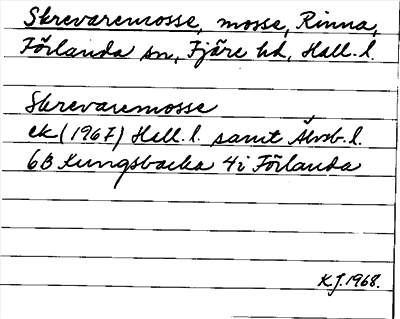 Skrevaremosse, mosse, Rinna,
Förlanda sn, Fjäre hd, Hall. l.
Skrevaremosse
ek (1967) Hall. l. samt Älvsb. l.
6B Kungsbacka 4i Förlanda
K.J. 1968.